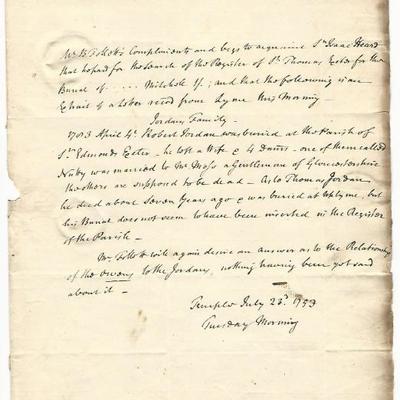 Mr. Follett's Compliments and begs to acquaint Sr. Isaac Heard
that he paid for the Search of the Register of St. Thomas Exeter for the
Burial of ..... Mitchell ; and that the following is an
Extract of a Letter recd. from Lyme this Morning —
Jordan Family —
1783 April 4. Robert Jordan was buried at the Parish of
St. Edmonds Exeter — he left a Wife & 4 Daurs. — one of them called
was married to Mr. Moss a Gentleman of Gloucestershire
the others are supposed to be dead — As to Thomas Jordan
he died about Seven Years ago & was buried at Uplyme, but
his Burial does not seem to have been inserted in the Register
of the Parish —
Mr. Follett will again desire an answer as to the Relationship
of the Owens to the Jordans, nothing having been yet said
about it —
Temple July 23d. 1793
Tuesday Morning